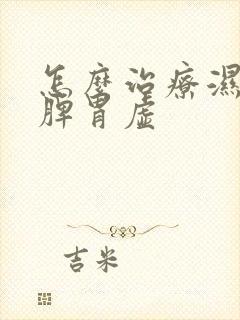 怎麼治療濕
脾胃虛
吉米